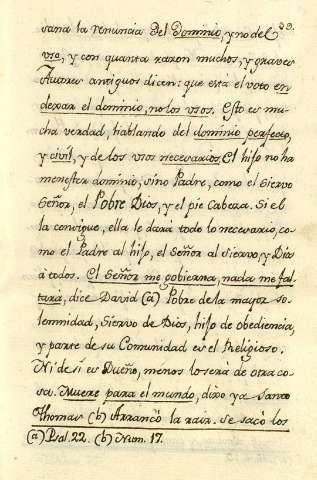 39.
sana la renuncia del Dominio, y no del
uso, y con quanta razon muchos, y graves
Autores antiguos dicen: que está el voto en
dexar el dominio, no los usos. Esto es mu-
cha verdad, hablando del dominio perfecto,
y civil, y de los usos necesarios. El hijo no ha
menester dominio, sino Padre, como el Siervo
Señor, el Pobre Dios, y el pie Cabeza. Si el
la consigue, ella le dará todo lo necesario, co-
mo el Padre al hijo, el Señor al Siervo, y Dios
á todos. El Señor me gobierna, nada me fal-
tará, dice David (a) Pobre de la mayor so-
lemnidad, Siervo de Dios, hijo de obediencia,
y parte de su Comunidad es el Religioso.
Ni de sí es Dueño, menos lo será de otra co-
sa. Muere para el mundo, dixo ya Santo
Thomas (b) Arrancó la raiz. Se sacó los
(a) Psal. 22. (b) Num. 17.